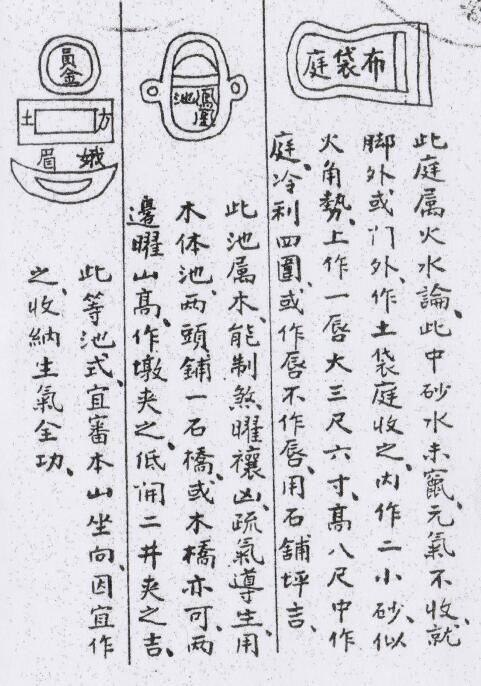 布袋庭
此庭属火水論、此中砂水未竄、元氣不收、就
脚外或门外、作土袋庭收之、内作二小砂、似
火角勢、上作一唇大三尺六寸、高八尺中作
庭、冷利四圍、或作唇不作唇、用石舖坪吉、
鳳凰池
此池属木、能制煞曜禳凶、疏氣導生、用
木体池、两頭鋪一石橋、或木橋亦可、两
邊曜山高、作墩夹之、低開二井夹之吉、
員金
方土
娥眉
此等池式、宜審本山坐向、因宜作
之、收納生氣全功、